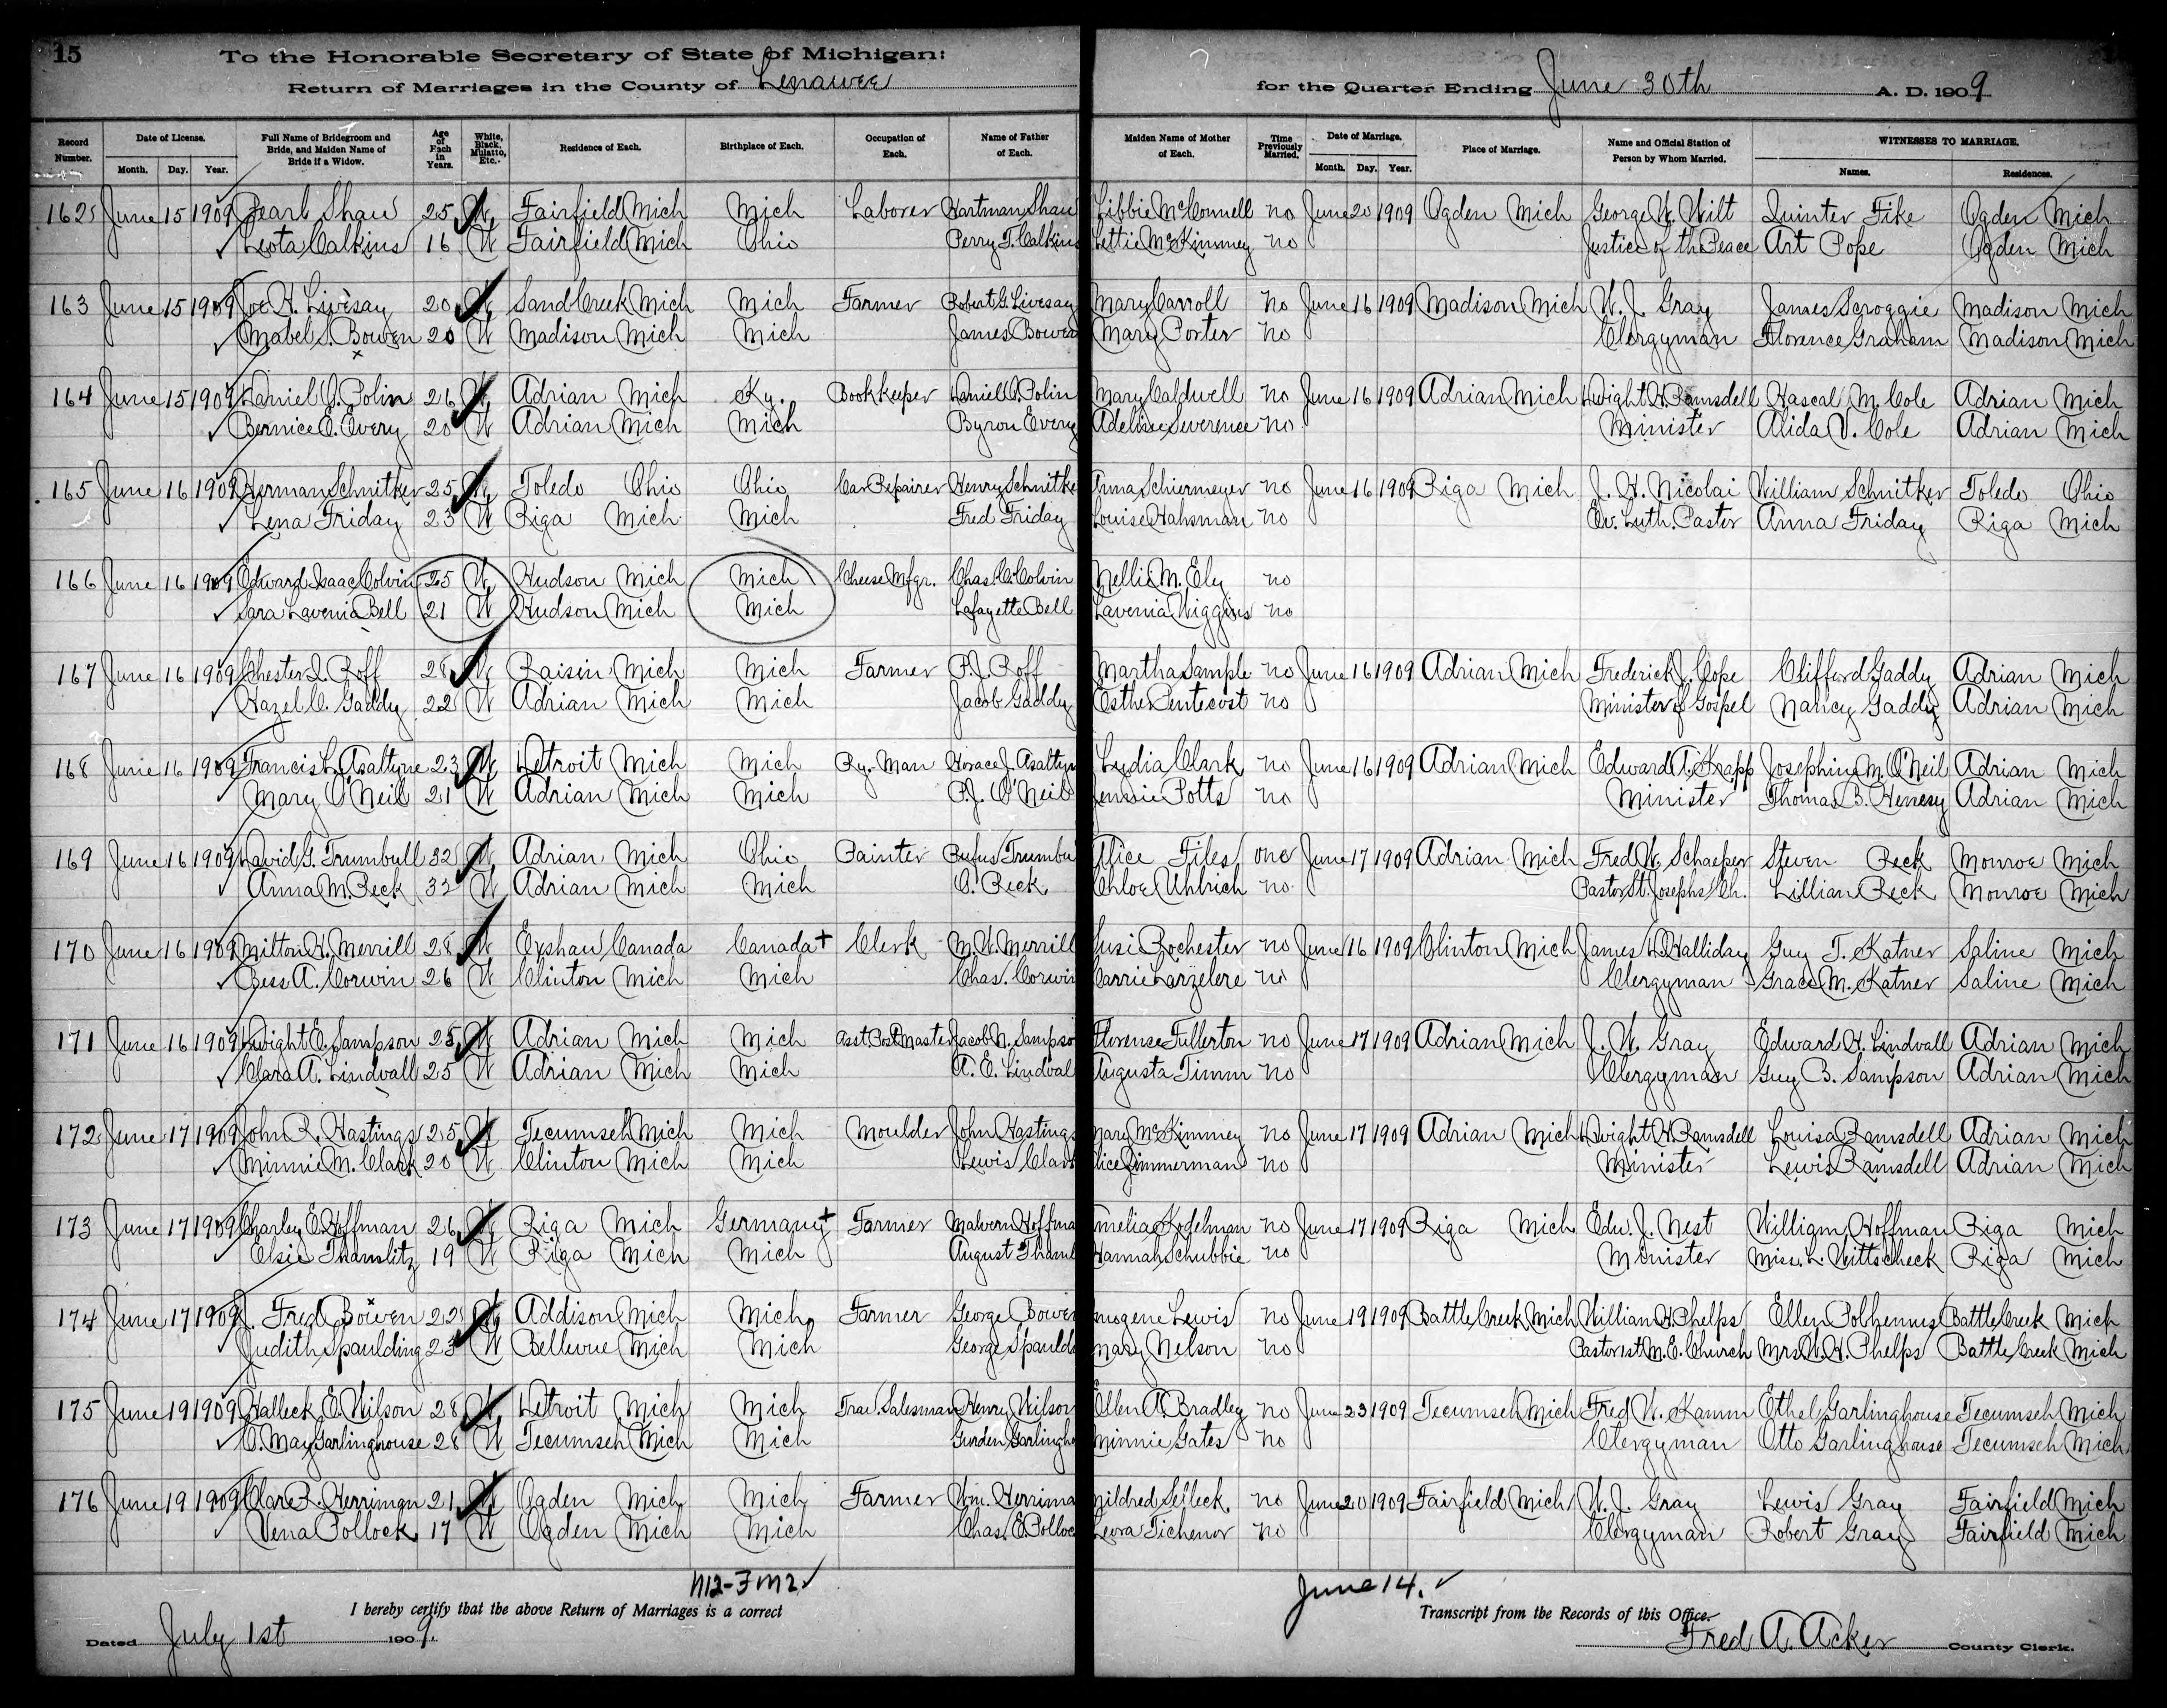 15
To the Honorable Secretary of State of Michigan:
Return of Marriages in the County of Lenawee for the Quarter Ending June 30th A. D. 1909
Record Number. Date of License. Month. Day. Year. Full Name of Bridegroom and Bride, and Maiden Name of Bride if a Widow. Age of Each in Years. White, Black, Mulatto, Etc. Residence of Each. Birthplace of Each. Occupation of Each. Name of Father of Each. Maiden Name of Mother of Each. Time Previously Married. Date of Marriage. Month. Day. Year. Place of Marriage. Name and Official Station of Person by Whom Married. WITNESSES TO MARRIAGE. Names. Residences.
162 June 15 1909 Pearl Shaw 25 W Fairfield Mich Mich Laborer Hartman Shaw Libbie McConnell no June 20 1909 Ogden Mich George W. Wilt Quinter Fike Ogden Mich
Leota Calkins 16 W Fairfield Mich Ohio Perry T. Calkins Lettie McKimmey no Justice of th Peace Art Pope Ogden Mich
163 June 15 1909 Joe H. Livesay 20 W Sand Creek Mich Mich Farmer Robert G. Livesay Mary Carroll no June 16 1909 Madison Mich W. J. Gray James Scroggie Madison Mich
Mabel S. Bowen 20 W Madison Mich Mich James Bowen Mary Porter no Clergyman Florence Graham Madison Mich
164 June 15 1909 Daniel O. Polin 26 W Adrian Mich Ky. Bookkeeper Daniel O. Polin Mary Caldwell no June 16 1909 Adrian Mich Dwight H. Ramsdell Hascal M. Cole Adrian Mich
Bernice E. Every 20 W Adrian Mich Mich Byron Every Adeline Severence no Minister Alida V. Cole Adrian Mich
165 June 16 1909 Herman Schnitker 25 W Toledo Ohio Ohio Car Repairer Henry Schnitke Anna Schiermeyer no June 16 1909 Riga Mich J. H. Nicolai William Schnitker Toledo Ohio
Lena Friday 23 W Riga Mich Mich Fred Friday Louise Hahsman no Ev. Luth. Pastor Anna Friday Riga Mich
166 June 16 1909 Edward Isaac Colvin 25 W Hudson Mich Mich Cheese Mfgr. Chas. C. Colvin Nellie M. Ely no
Sara Lavenia Bell 21 W Hudson Mich Mich Lafayette Bell Lavenia Wiggins no
167 June 16 1909 Chester I. Roff 28 W Raisin Mich Mich Farmer P. J. Roff Martha Sample no June 16 1909 Adrian Mich Frederick J. Cope Clifford Gaddy Adrian Mich
Hazel C. Gaddy 22 W Adrian Mich Mich Jacob Gaddy Esther Pentecost no Minister of Gospel Nancy Gaddy Adrian Mich
168 June 16 1909 Francis L. Asaltyne 23 W Detroit Mich Mich Ry. Man Horace J. Asaltyn Lydia Clark no June 16 1909 Adrian Mich Edward A. Knapp Josephine M. O'Neil Adrian Mich
Mary O'Neil 21 W Adrian Mich Mich P. J. O'Neil Jennie Potts no Minister Thomas B. Henesy Adrian Mich
169 June 16 1909 David G. Trumbull 32 W Adrian Mich Ohio Painter Rufus Trumbu Alice Files one June 17 1909 Adrian Mich Fred W. Schaeper Steven Reck Monroe Mich
Anna M. Reck 32 W Adrian Mich Mich C. Reck Chloe Uhlrich no Pastor St. Josephs Ch. Lillian Reck Monroe Mich
170 June 16 1909 Milton H. Merrill 28 W Canada Canada Clerk M. W. Merrill Susi Rochester no June 16 1909 Clinton Mich James H. Halliday Guy T. Katner Saline Mich
Bess A. Corwin 26 W Clinton Mich Mich Chas. Corwin Carrie Larzelere no Clergyman Grace M. Katner Saline Mich
171 June 16 1909 Dwight E. Sampson 25 W Adrian Mich Mich Asst. Post Master Jacob N. Sampso Florense Fullerton no June 17 1909 Adrian Mich J. W. Gray Edward H. Lindvall Adrian Mich
Clara A. Lindvall 25 W Adrian Mich Mich A. E. Lindval Augusta Timm no Clergyman Guy B. Sampson Adrian Mich
172 June 17 1909 John R. Hastings 25 W Tecumseh Mich Mich Moulder John Hastings Mary McKimmey no June 17 1909 Adrian Mich Dwight H. Ramsdell Louisa Ramsdell Adrian Mich
Minnie M. Clark 20 W Clinton Mich Mich Lewis Clark lice Zimmerman no Minister Lewis Ramsdell Adrian Mich
173 June 17 1909 Charley E. Hoffman 26 W Riga Mich Germany Farmer Malvern Hoffma melia Kofelman no June 17 1909 Riga Mich Edw. J. Nest William Hoffman Riga Mich
Elsie Thamlitz 19 W Riga Mich Mich August Thaml Hannah Schubbie no Minister Miss. L. Wittscheck Riga Mich
174 June 17 1909 J. Fred Bowen 22 W Addison Mich Mich Farmer George Bowen mogene Lewis no June 19 1909 Battle Creek Mich William H. Phelps Ellen Polhemus Battle Creek Mich
Judith Spaulding 23 W Bellevue Mich Mich George Spauld Mary Nelson no Pastor 1st M. E. Church Mrs. W. H. Phelps Battle Creek Mich
175 June 19 1909 Halleck E. Wilson 28 W Detroit Mich Mich Trav. Salesman Henry Wilson Ellen A. Bradley no June 23 1909 Tecumseh Mich Fred W. Kamm Ethel Garlinghouse Tecumseh Mich
C. May Garlinghouse 28 W Tecumseh Mich Mich Gurden Garlingh Minnie Gates no Clergyman Otto Garlinghouse Tecumseh Mich
176 June 19 1909 Clare R. Herriman 21 W Ogden Mich Mich Farmer Wm. Herrima Mildred Selleck no June 20 1909 Fairfield Mich W. J. Gray Lewis Gray Fairfield Mich
Vena Pollock 17 W Ogden Mich Mich Chas. E. Polloc Leora Tichenor no Clergyman Robert Gray Fairfield Mich
June 14.
I hereby certify that the above Return of Marriages is a correct Transcript from the Records of this Office.
Dated July 1st 1909. Fred A. Acker County Clerk.